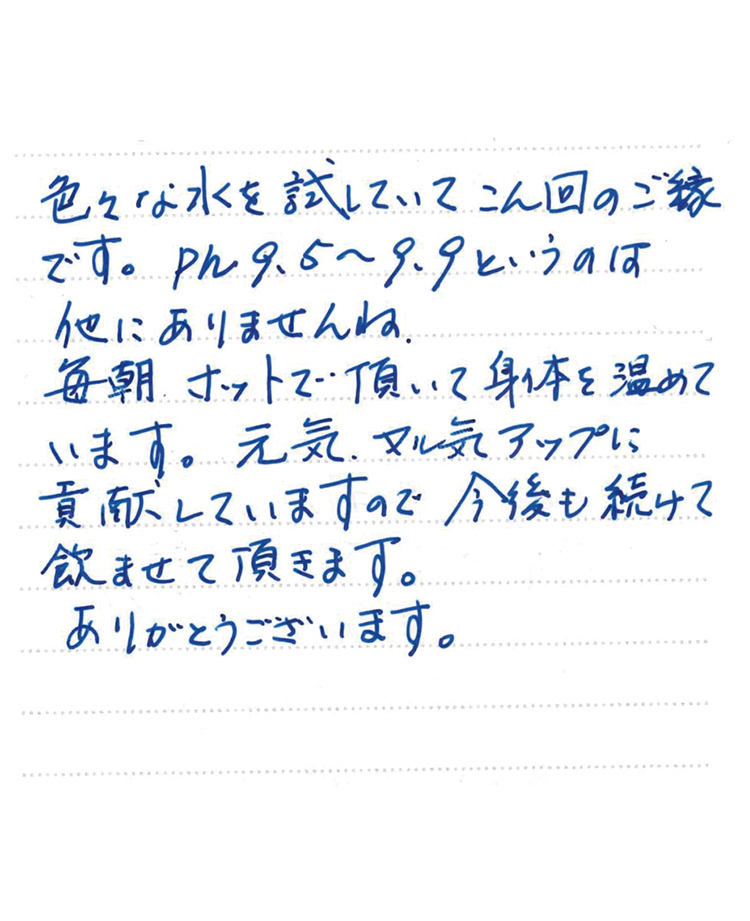 色々な水を試していてこん回のご縁
です。ph9、5〜9、9というのは
他にありませんね.
毎朝 ホットで頂いて身体を温めて
います。元気、ヤル気アップに
貢献していますので 今後も続けて
飲ませて頂きます。
ありがとうございます。